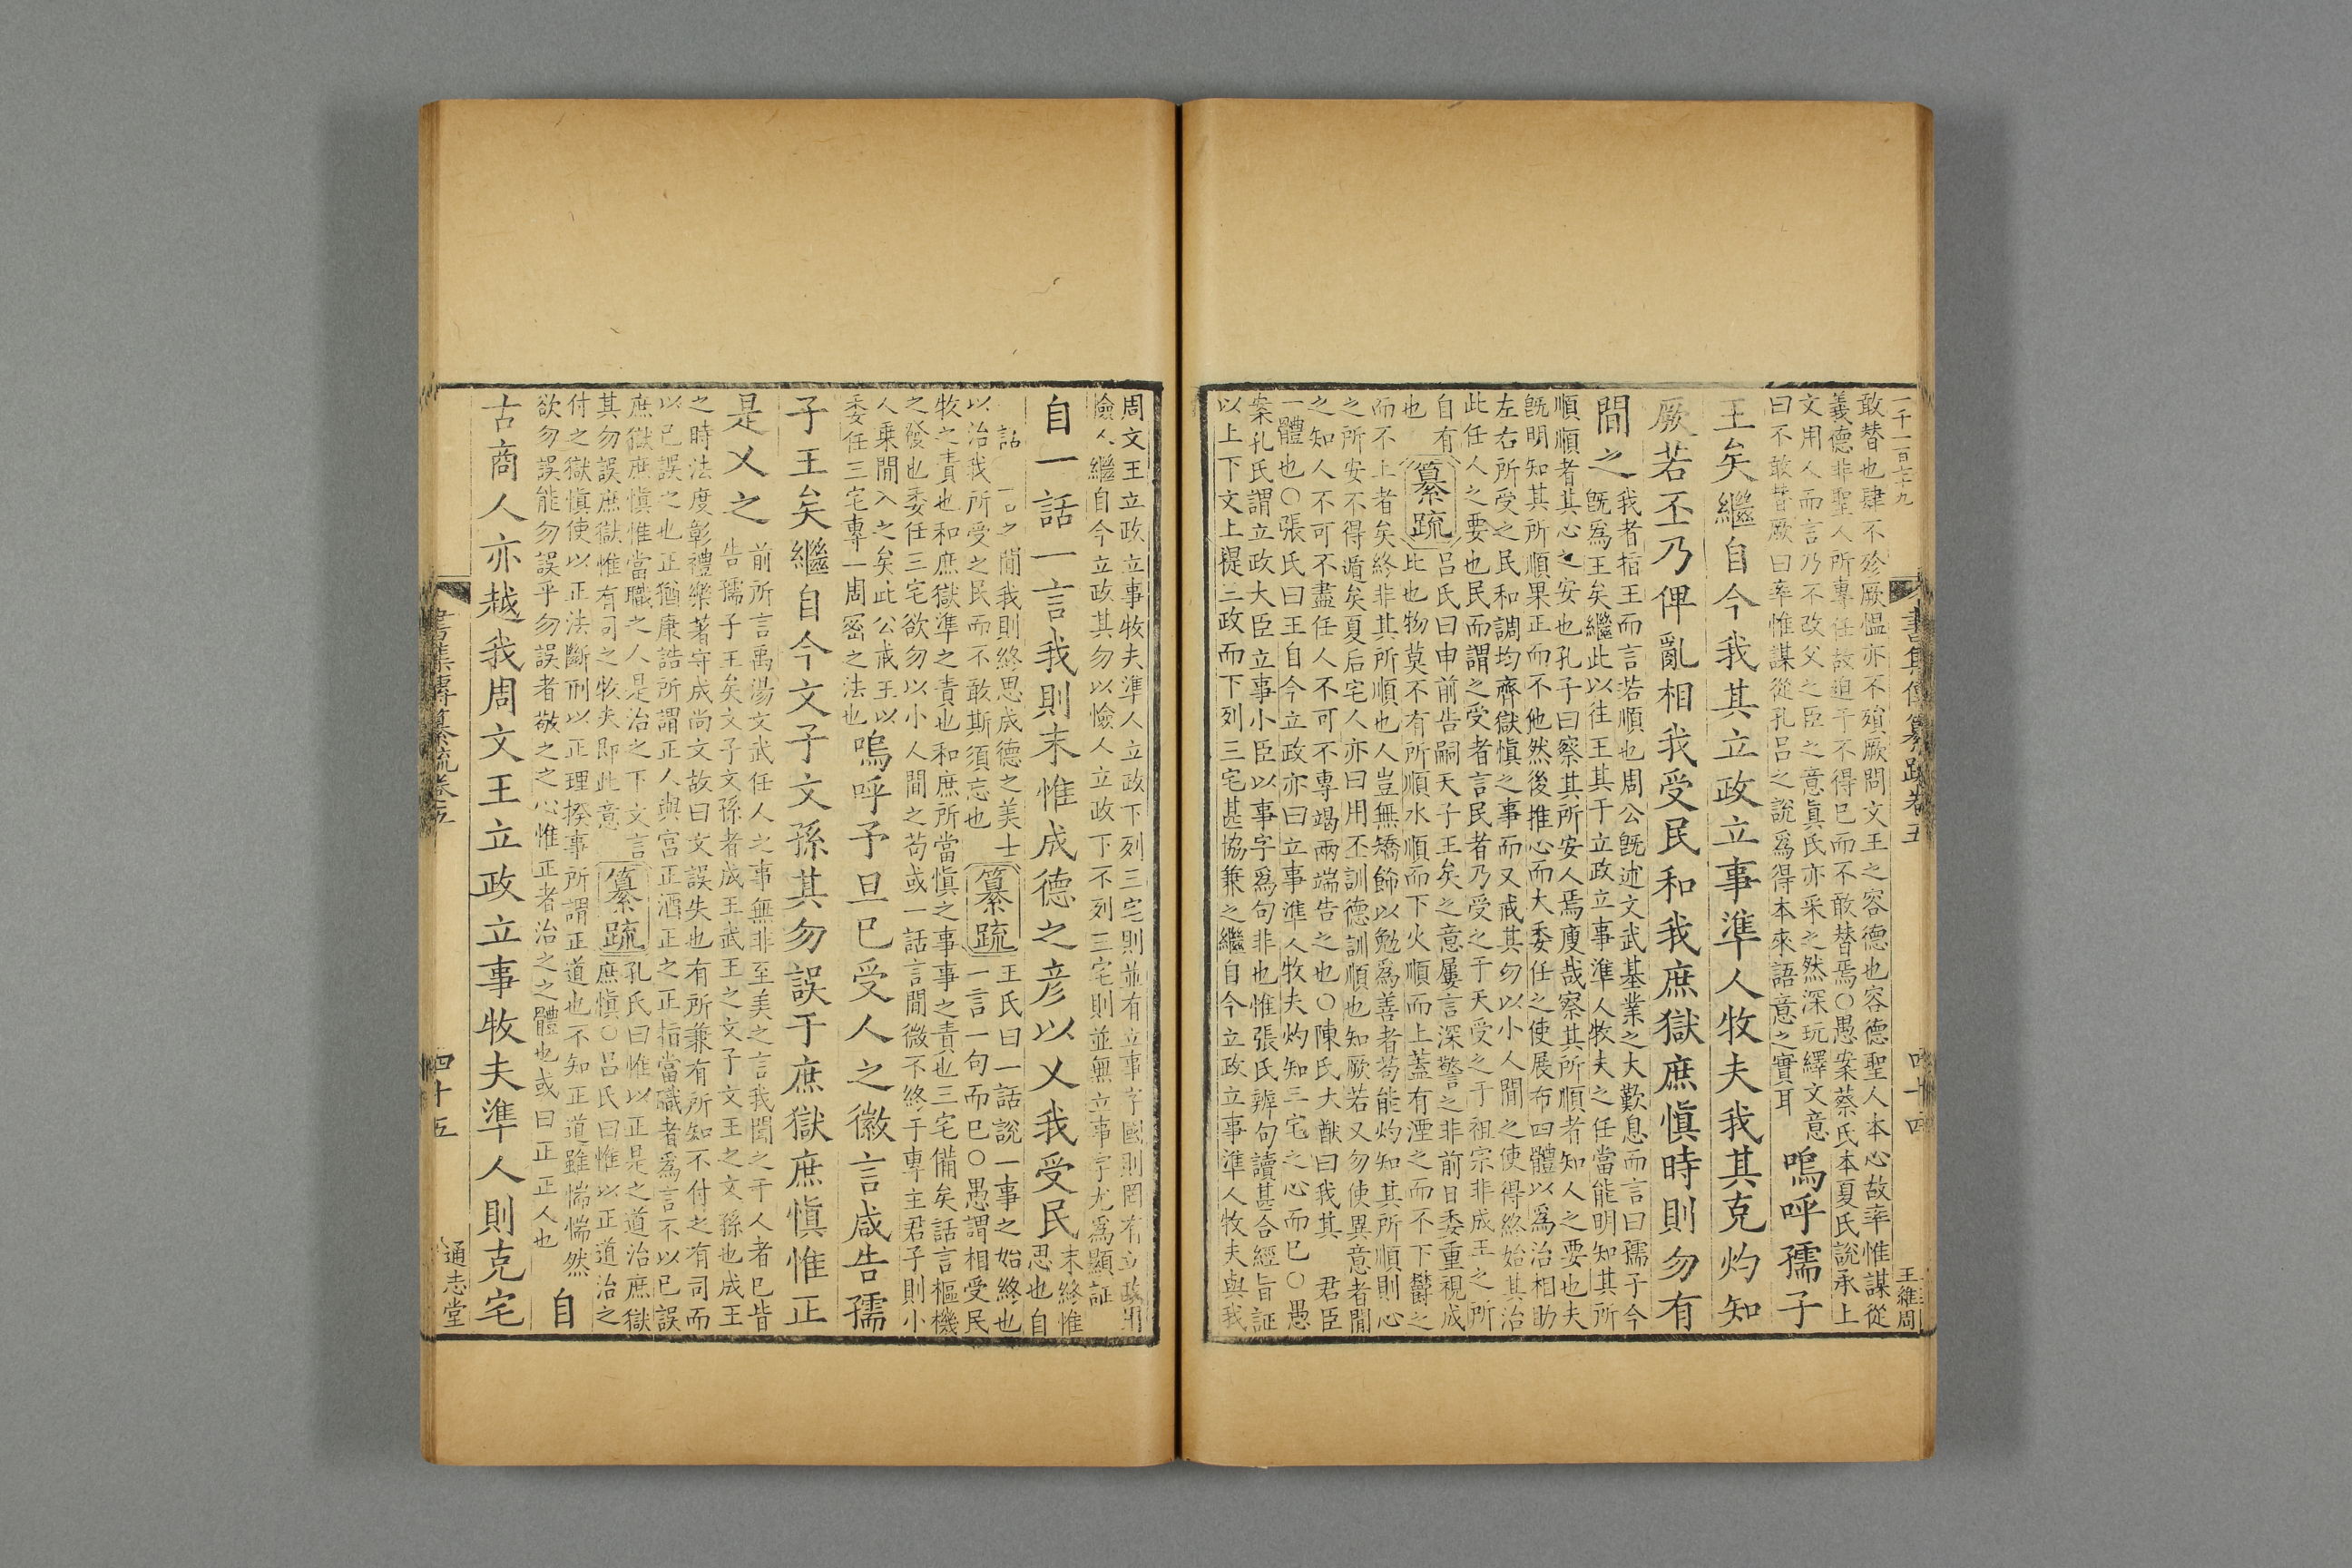 一千一百六十九
書集傳纂疏卷五
四十四
王維周
敢替也肆不殄厥慍亦不殞厥問文王之容德也容德聖人本心故率惟謀從
義德非聖人所專任故迫于不得已而不敢替焉○愚案蔡氏本夏氏說承上
文用人而言乃不改父之臣之意眞氏亦采之然深玩繹文意
曰不敢替厥曰率惟謀從孔呂之說爲得本來語意之實耳
嗚呼孺子
王矣繼自今我其立政立事準人牧夫我其克灼知
厥若丕乃俾亂相我受民和我庶獄庶愼時則勿有
間之
我者指王而言若順也周公旣述文武基業之大歎息而言曰孺子今
旣爲王矣繼此以往王其于立政立事準人牧夫之任當能明知其所
順順者其心之安也孔子曰察其所安人焉廋哉察其所順者知人之要也夫
旣明知其所順果正而不他然後推心而大委任之使展布四體以爲治相助
左右所受之民和調均齊獄愼之事而又戒其勿以小人間之使得終始其治
此任人之要也民而謂之受者言民者乃受之于天受之于祖宗非成王之所
自有
也
纂疏
呂氏曰申前告嗣天子王矣之意屢言深警之非前日委重視成
此也物莫不有所順水順而下火順而上蓋有湮之而不下鬱之
而不上者矣終非其所順也人豈無矯飾以勉爲善者苟能灼知其所順則心
之所安不得遁矣夏后宅人亦曰用丕訓德訓順也知厥若又勿使異意者閒
之知人不可不盡任人不可不專竭兩端告之也○陳氏大猷曰我其 君臣
一體也○張氏曰王自今立政亦曰立事準人牧夫灼知三宅之心而已○愚
案孔氏謂立政大臣立事小臣以事字爲句非也惟張氏辨句讀甚合經旨証
以上下文上提二政而下列三宅甚協兼之繼自今立政立事準人牧夫與我
周文王立政立事牧夫準人立政下列三宅則並有立事字國則罔有立政用
憸人繼自今立政其勿以憸人立政下不列三宅則並無立事字尤爲顯証
自一話一言我則末惟成德之彦以乂我受民
末終惟
思也自
一話一言之間我則終思成德之美士
以治我所受之民而不敢斯須忘也
纂疏
王氏曰一話說一事之始終也
一言一句而已○愚謂相受民
牧之責也和庶獄準之責也和庶所當愼之事事之責也三宅備矣話言樞機
之發也委任三宅欲勿以小人間之苟或一話言間微不終于專主君子則小
人乘間入之矣此公戒王以
委任三宅專一周密之法也
嗚呼予旦已受人之徽言咸告孺
子王矣繼自今文子文孫其勿誤于庶獄庶愼惟正
是乂之
前所言禹湯文武任人之事無非至美之言我聞之于人者已皆
告孺子王矣文子文孫者成王武王之文子文王之文孫也成王
之時法度彰禮樂著守成尚文故曰文誤失也有所兼有所知不付之有司而
以已誤之也正猶康誥所謂正人與宮正酒正之正指當職者爲言不以已誤
庶獄庶愼惟當職之人是治之下文言
其勿誤庶獄惟有司之牧夫即此意
纂疏
孔氏曰惟以正是之道治庶獄
庶愼○呂氏曰惟以正道治之
付之獄愼使以正法斷刑以正理揆事所謂正道也不知正道雖惴惴然
欲勿誤能勿誤乎勿誤者敬之之心惟正者治之之體也或曰正正人也
自
古商人亦越我周文王立政立事牧夫準人則克宅
書集傳纂疏卷五
四十五
通志堂